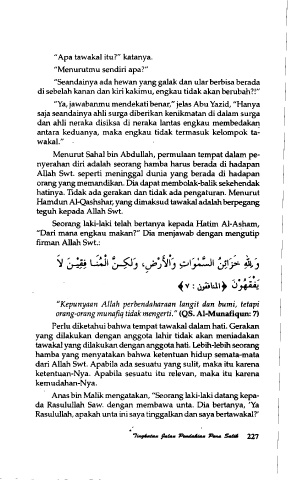 "Apa tawakal itu?" katanya.
"Menurutmu sendiri apa?"
"Seandainya ada hewan yang galak dan ular berbisa berada
di sebelah kanan dan kiri kakimu, engkau tidak akan berubah?!"
"Ya, jawabanmu mendekati benar," jelas Abu Yazid, "Hanya
saja seandainya ahli surga diberikan kenikmatan di dalam surga
dan ahli neraka disiksa di neraka lantas engkau membedakan
antara keduanya, maka engkau tidak termasuk kelompok ta-
wakal."
Menurut Sahal bin Abdullah, permulaan tempat dalam pe-
nyerahan diri adalah seorang hamba harus berada di hadapan
Allah Swt. seperti meninggal dunia yang berada di hadapan
orang yang memandikan. Dia dapat membolak-balik sekehendak
hatinya. Tidak ada gerakan dan tidak ada pengaturan. Menurut
Hamdun Al-Qashshar, yang dimaksud tawakal adalah berpegang
teguh kepada Allah Swt.
Seorang laki-laki telah bertanya kepada Hatim Al-Asham,
"Dari mana engkau makan?" Dia menjawab dengan mengutip
firman Allah Swt.:
وَلِلَّهِ خَزَائِنُ السَّمٰوَاتِ وَالْأَرْضِ، وَلٰكِنَّ الْمُنَـا فِقِيْـنَ لَا
يَفْقَهُوْنَ ﴿المنافقون : ٧﴾
"Kepunyaan Allah perbendaharaan langit dan bumi, tetapi
orang-orang munafiq tidak mengerti." (QS. Al-Munafiqun: 7)
Perlu diketahui bahwa tempat tawakal dalam hati. Gerakan
yang dilakukan dengan anggota lahir tidak akan meniadakan
tawakal yang dilakukan dengan anggota hati. Lebih-lebih seorang
hamba yang menyatakan bahwa ketentuan hidup semata-mata
dari Allah Swt. Apabila ada sesuatu yang sulit, maka itu karena
ketentuan-Nya. Apabila sesuatu itu relevan, maka itu karena
kemudahan-Nya.
Anas bin Malik mengatakan, "Seorang laki-laki datang kepa-
da Rasulullah Saw. dengan membawa unta. Dia bertanya, 'Ya
Rasulullah, apakah unta ini saya tinggalkan dan saya bertawakal?'
Tingkatan Jalan Pendakian Para Salik 227